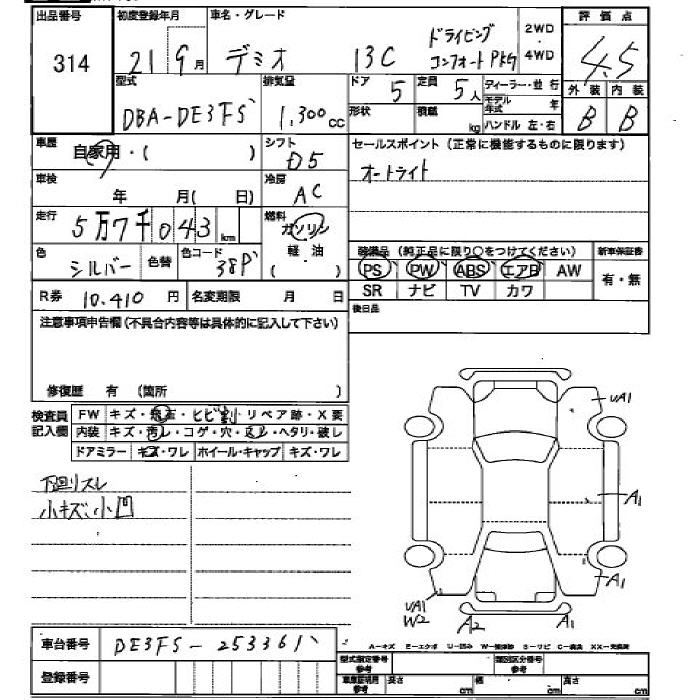 出品番号 初度登録年月 車名・グレード 2WD 評価点
314 21 9月 デミオ 13C ドライビング コンフォートPkG 4WD 4.5
型式 排気量 ドア 5 定員 5人 ディーラー・並 行 外装 内装
DBA-DE3FS 1,300cc 形状 積載 kg モデル年式 年 ハンドル 左・右 B B
車歴 自家用・( ) シフト D5 セールスポイント(正常に機能するものに限ります)
車検 年 月( 日) 冷房 AC オートライト
走行 5万7千043km 燃料 ガソリン
軽・油
( )
装備品(純正品に限り○をつけてください) 新車保証書
色 シルバー 色替 色コード 38P PS PW ABS エアB AW 有・無
SR ナビ TV カワ
R券 10.410 円 名変期限 月 日 後日品
注意事項申告欄(不具合内容等は具体的に記入して下さい)
修復歴 有 (箇所 )
検査員記入欄 FW キズ・飛石・ヒビ割・リペア跡・X要
内装 キズ・汚レ・コゲ・穴・スレ・ヘタリ・破レ
ドアミラー キズ・ワレ ホイール・キャップ キズ・ワレ
下回リスレ
小キズ、小凹
UA1
A1
A1
UA1
W2
A2
車台番号 DE3FS-253361
A−キズ E−エクボ U−凹み
型式指定番号 参考 類別区分番号 参考
登録番号 車庫証明用 参考 長さ cm 幅 cm 高さ cm